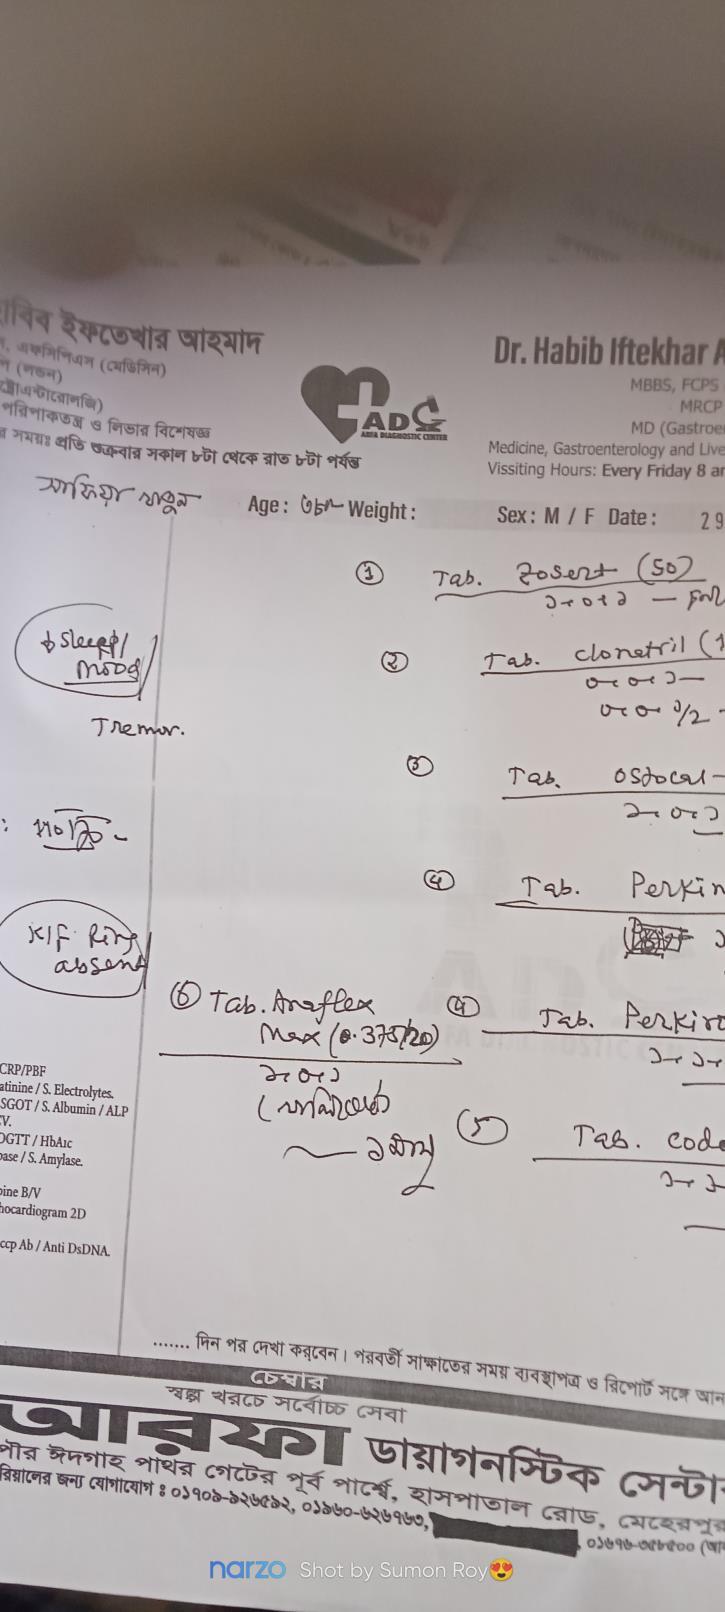 াবিব ইফতেখার আহমাদ
, এফসিপিএস (মেডিসিন)
(লন্ডন)
ট্রোএন্টারোলজি)
পরিপাকতন্ত্র ও লিভার বিশেষজ্ঞ
সময়ঃ প্রতি শুক্রবার সকাল ৮টা থেকে রাত ৮টা পর্যন্ত
ADC
ARFA DIAGNOSTIC CENTER
Dr. Habib Iftekhar A
MBBS, FCPS
MRCP
MD (Gastroe
Medicine, Gastroenterology and Live
Vissiting Hours: Every Friday 8 a
সাফিয়া খাতুন Age : ৩৮ Weight : Sex : M / F Date : 29
↓ Sleep/
mood
Tremor.
K/F Ring
absent
① Tab. Zosert (50)
১+০+১
② Tab. Clonatril (1
০+০+১
০+০+১/২
③ Tab. Ostocal
১+০+১
④ Tab. Perkin
④ Tab. Perkin
১+১+
⑤ Tab. code
১+১
⑥ Tab. Anaflex
Max (0.375/20)
১+০+১
CRP/PBF
atinine / S. Electrolytes.
SGOT / S. Albumin / ALP
V.
OGTT / HbA1c
ase / S. Amylase.
pine B/V
hocardiogram 2D
ccp Ab / Anti DsDNA.
....... দিন পর দেখা করবেন। পরবর্তী সাক্ষাতের সময় ব্যবস্থাপত্র ও রিপোর্ট সঙ্গে আন
চেম্বার
স্বল্প খরচে সর্বোচ্চ সেবা
আরফা ডায়াগনস্টিক সেন্টা
পৌর ঈদগাহ পাথর গেটের পূর্ব পার্শ্বে, হাসপাতাল রোড, মেহেরপুর
রিয়ালের জন্য যোগাযোগ : ০১৭০৯-৯২৬৫৯২, ০১৯৬০-৬২৬৭৬৩,
narzo Shot by Sumon Roy😍